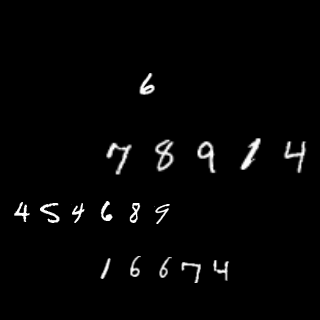 6
78914
454689
16674